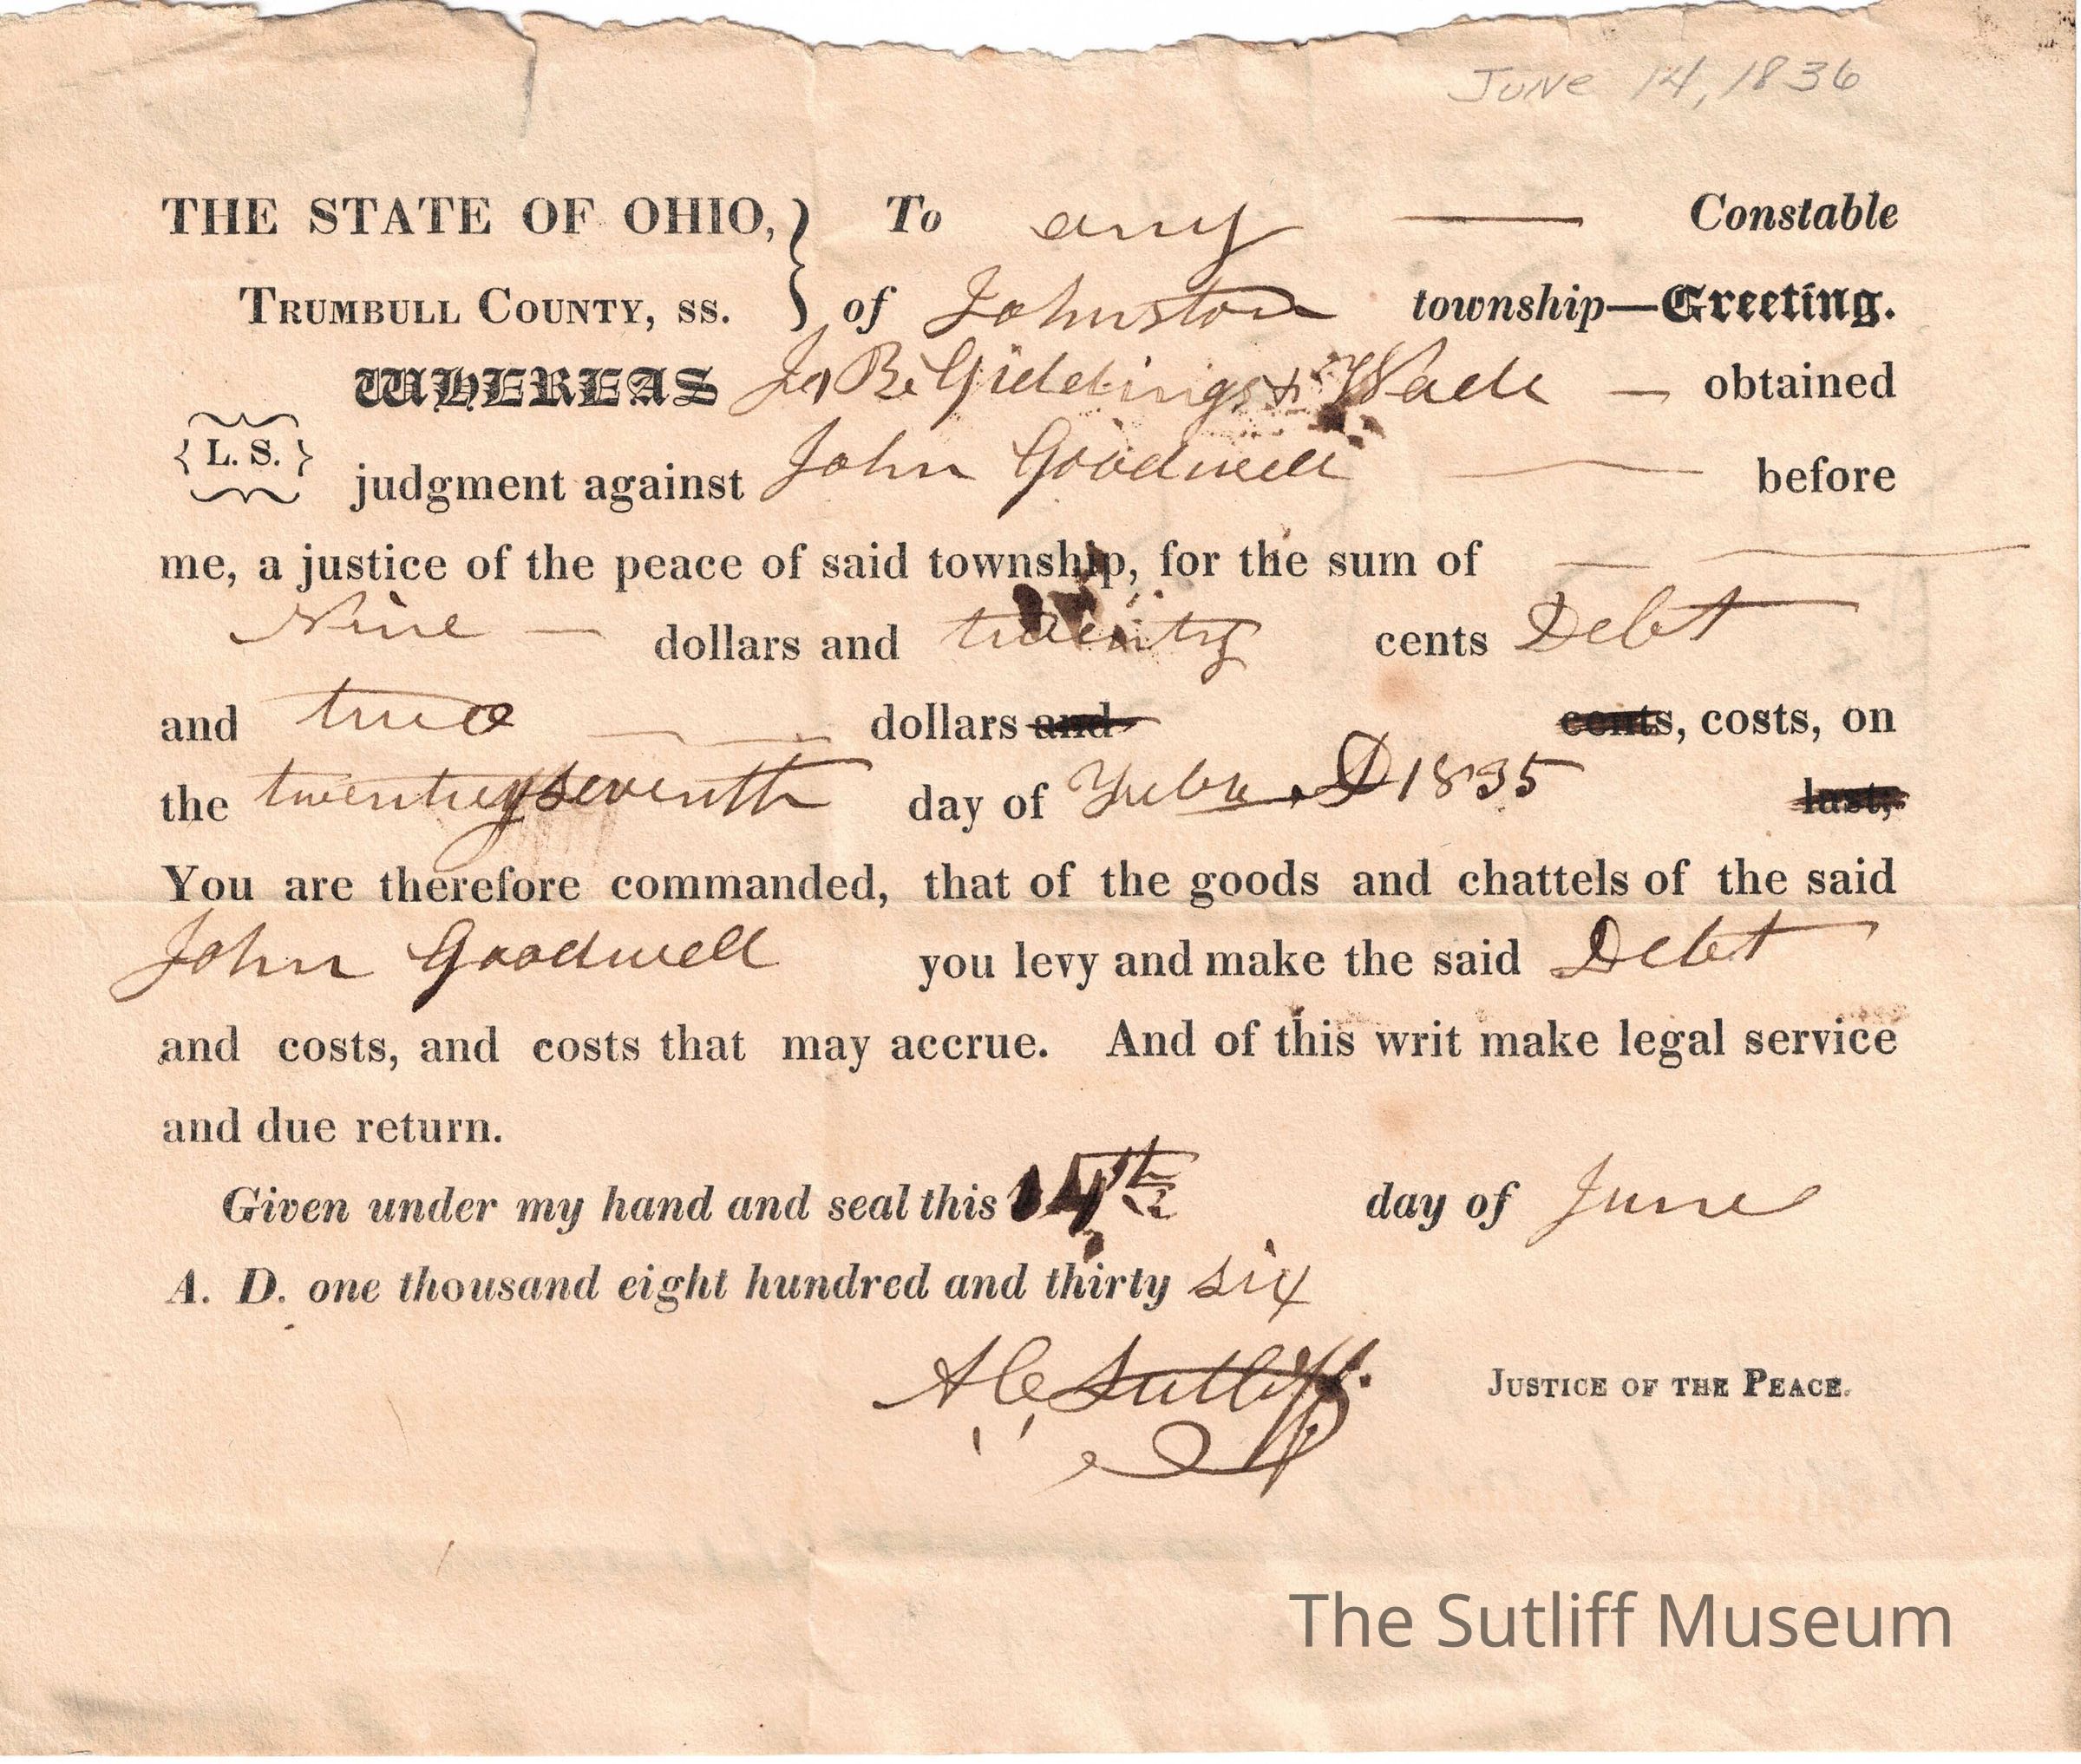 June 14, 1836
THE STATE OF OHIO, } To any Constable
TRUMBULL COUNTY, ss. } of Johnston township—Greeting.
WHEREAS Jo, R. Giddings & Wade — obtained
{L. S.} judgment against John Goodwell — before
me, a justice of the peace of said township, for the sum of —
Nine — dollars and twenty cents Debt
and two — dollars and cents, costs, on
the twentyseventh day of D 1835 last,
You are therefore commanded, that of the goods and chattels of the said
John Goodwell you levy and make the said Debt
and costs, and costs that may accrue. And of this writ make legal service
and due return.
Given under my hand and seal this 14th day of June
A. D. one thousand eight hundred and thirty six
A C Sutliff. JUSTICE OF THE PEACE.
The Sutliff Museum